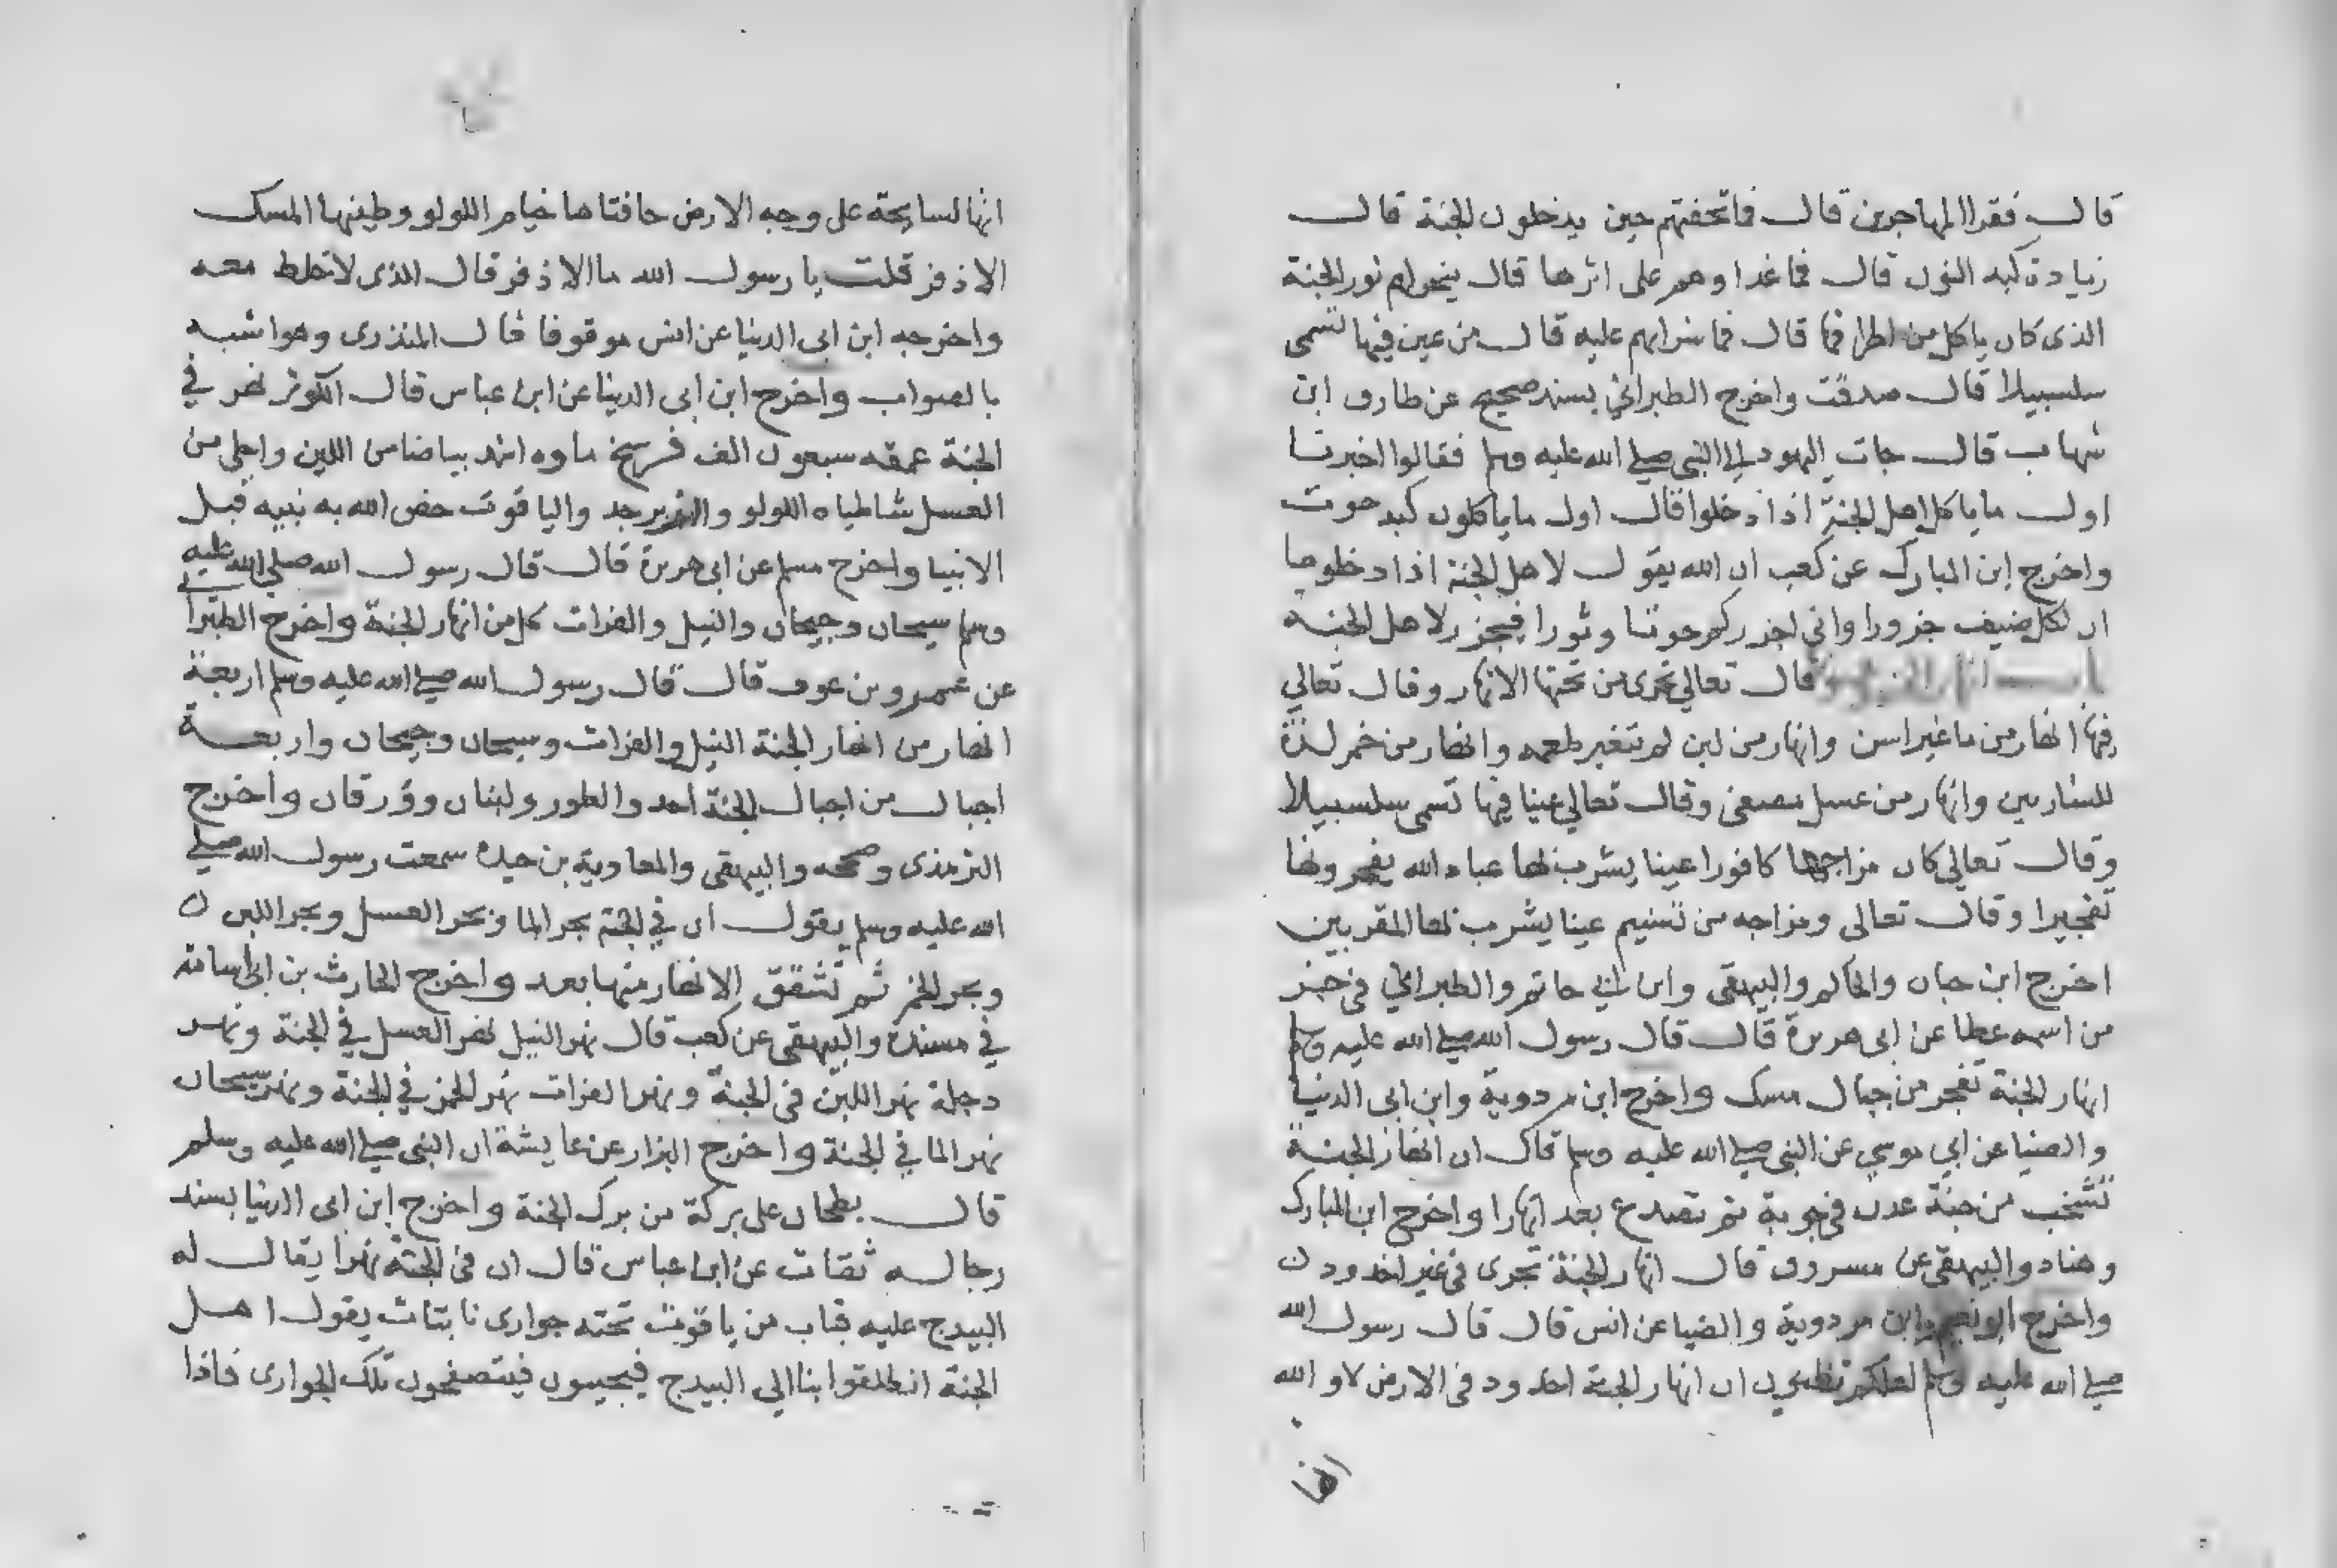 قال فقرا المهاجرين قال فما تحفتهم حين يدخلون الجنة قال
زيادة كبد النون قال فما غداوهم على اثرها قال ينحر لهم ثور الجنة
الذى كان ياكل من اطرافها قال فما شرابهم عليه قال من عين فيها تسمى
سلسبيلا قال صدقت واخرج الطبراني بسند صحيح عن طارق ابن
شهاب قال جات اليهود الى النبي صلى الله عليه وسلم فقالوا اخبرنا
اول ما ياكل اهل الجنة اذا دخلوا قال اول ما ياكلون كبد حوت
واخرج ابن المبارك عن كعب ان الله يقول لاهل الجنة اذا دخلوها
ان لكل ضيف جزورا واني اجزركم حوتا وثورا فيجزر لاهل الجنة
باب قال تعالي تجرى من تحتها الانهار وقال تعالي
فيها انهار من ما غير اسن وانهار من لبن لم تتغير طعمه وانهار من خمر لذة
للشاربين وانهار من عسل مصفى وقال تعالي عينا فيها تسمى سلسبيلا
وقال تعالي كان مزاجها كافورا عينا يشرب بها عباد الله يفجرونها
تفجيرا وقال تعالى ومزاجه من تسنيم عينا يشرب بها المقربين
اخرج ابن حبان والحاكم والبيهقى وابن ابي حاتم والطبراني في خبر
من اسمه عطا عن ابى هريرة قال قال رسول الله صلى الله عليه وسلم
انهار الجنة تفجر من جبال مسك واخرج ابن مردوية وابن ابى الدنيا
والضيا عن ابي موسي عن النبى صلى الله عليه وسلم قال ان انهار الجنة
تشخب من جنة عدن في جوبة ثم تصدع بعد انهارا واخرج ابن المبارك
وهناد والبيهقى عن مسروق قال انهار الجنة تجرى في غير اخدود ن
واخرج ابو نعيم وابن مردوية والضيا عن انس قال قال رسول الله
صلى الله عليه وسلم لعلكم تظنون ان انهار الجنة اخدود فى الارض لا والله
انها
انها لسايحة على وجه الارض حافتاها خيام اللولو وطينها المسك
الاذفر قلت يا رسول الله ما الاذفر قال الذى لا خلط معه
واخرجه ابن ابى الدنيا عن انس موقوفا قال المنذرى وهو اشبه
بالصواب واخرج ابن ابى الدنيا عن ابن عباس قال الكوثر نهر في
الجنة عمقه سبعون الف فرسخ ماوه اشد بياضا من اللبن واحلى من
العسل شاطياه اللولو والزبرجد والياقوت خص الله به نبيه قبل
الانبيا واخرج مسلم عن ابى هريرة قال قال رسول الله صلى الله عليه
وسلم سيحان وجيحان والنيل والفرات كل من انهار الجنة واخرج الطبراني
عن عمرو بن عوف قال قال رسول الله صلى الله عليه وسلم اربعة
انهار من انهار الجنة النيل والفرات وسيحان وجيحان واربعة
اجبال من اجبال الجنة احد والطور ولبنان وورقان واخرج
الترمذى وصححه والبيهقى والمعاوية بن حيدة سمعت رسول الله صلى
الله عليه وسلم يقول ان في الجنة بحر الما وبحر العسل وبحر اللبن ن
وبحر الخمر ثم تشقق الانهار منها بعد واخرج الحارث بن ابى اسامة
في مسنده والبيهقى عن كعب قال نهر النيل نهر العسل في الجنة ونهر
دجلة نهر اللبن فى الجنة ونهر الفرات نهر الخمر في الجنة ونهر سيحان
نهر الما في الجنة واخرج البزار عن عايشة ان النبى صلى الله عليه وسلم
قال بطحان على بركة من برك الجنة واخرج ابن ابى الدنيا بسند
رجاله ثقات عن ابن عباس قال ان فى الجنة نهرا يقال له
البيدج عليه قباب من ياقوت تحته جوارى نابتات يقول اهل
الجنة انطلقوا بنا الي البيدج فيجيبون فيتصفحون تلك الجوارى فاذا